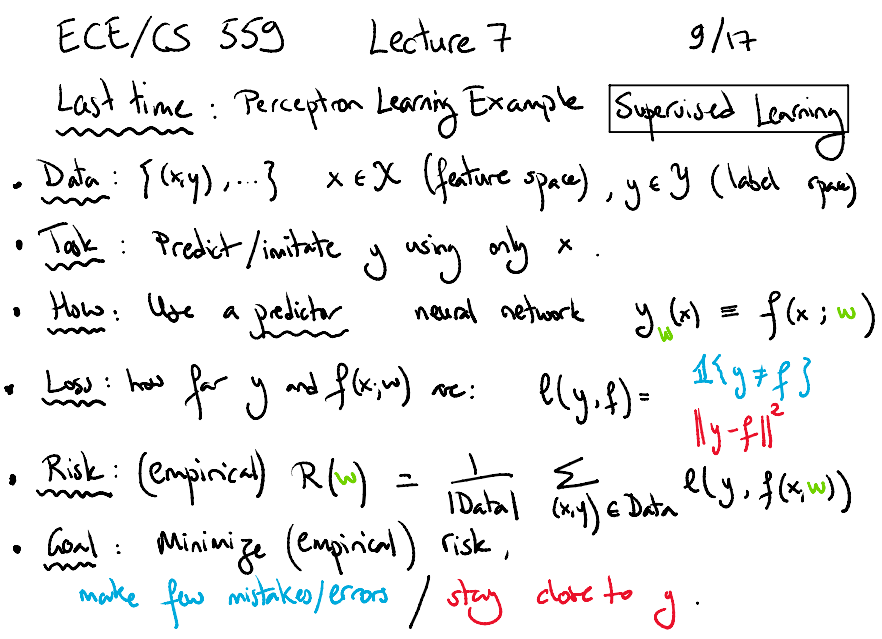 ECE/CS 559 Lecture 7 9/17
Last time : Perceptron Learning Example Supervised Learning
• Data : {(x,y), ...} x ∈ X (feature space), y ∈ Y (label space)
• Task : Predict/imitate y using only x .
• How : Use a predictor neural network y_w(x) ≡ f(x ; w)
• Loss : how far y and f(x;w) are: ℓ(y, f) = 𝟙{y ≠ f}
‖y - f‖²
• Risk : (empirical) R(w) = 1/|Data| Σ_{(x,y) ∈ Data} ℓ(y, f(x,w))
• Goal : Minimize (empirical) risk,
make few mistakes/errors / stay close to y .